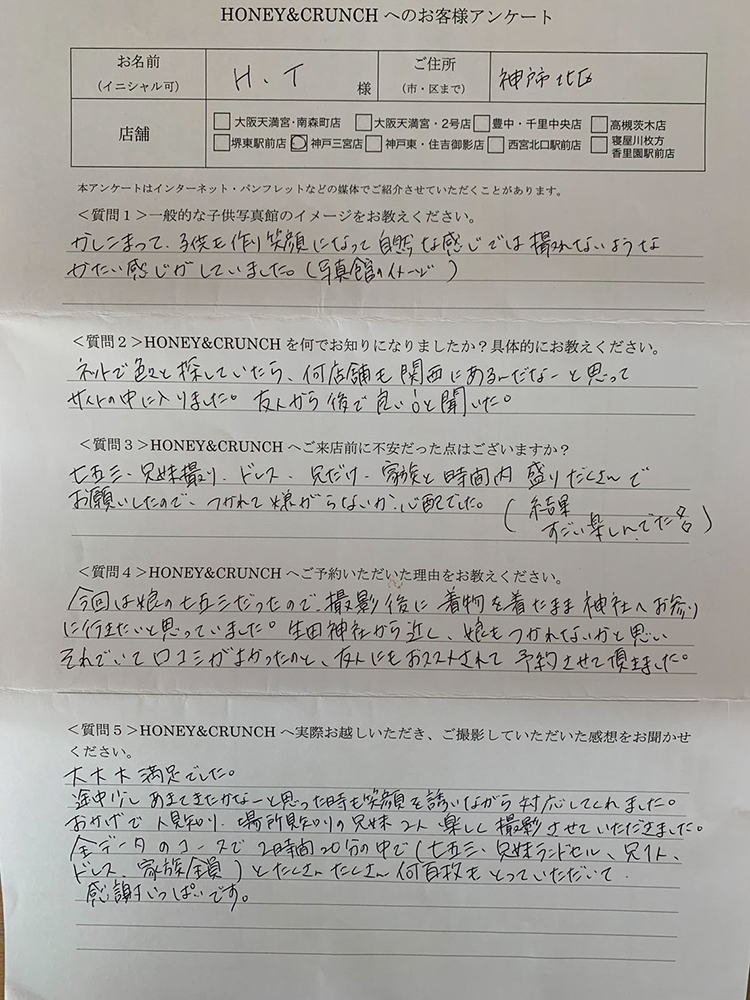 HONEY&CRUNCH へのお客様アンケート
お名前
(イニシャル可)
H.T
様
ご住所
(市・区まで)
神戸市北区
店舗
大阪天満宮・南森町店
大阪天満宮・2号店
豊中・千里中央店
高槻茨木店
堺東駅前店
神戸三宮店
神戸東・住吉御影店
西宮北口駅前店
寝屋川枚方
香里園駅前店
本アンケートはインターネット・パンフレットなどの媒体でご紹介させていただくことがあります。
＜質問1＞一般的な子供写真館のイメージをお教えください。
かしこまって、子供も作り笑顔になって自然な感じでは撮れないような
かたい感じがしていました。(写真館のイメージ)
＜質問2＞HONEY&CRUNCH を何でお知りになりましたか？具体的にお教えください。
ネットで色々と探していたら、何店舗も関西にあるんだなーと思って
サイトの中に入りました。友人から後で良いよと聞いた。
＜質問3＞HONEY&CRUNCH へご来店前に不安だった点はございますか？
七五三・兄妹撮り・ドレス・兄だけ・家族と時間内盛りだくさんで
お願いしたので、つかれて嫌がらないか心配でした。
(結果
すごい楽しんでた)
＜質問4＞HONEY&CRUNCH へご予約いただいた理由をお教えください。
今回は娘の七五三だったので、撮影後に着物を着たまま神社へお参り
に行きたいと思っていました。生田神社から近く、娘もつかれないかと思い
それでいて口コミがよかったのと、友人にもおススメされて予約させて頂きました。
＜質問5＞HONEY&CRUNCH へ実際お越しいただき、ご撮影していただいた感想をお聞かせ
ください。
大大大満足でした。
途中少しあきてきたかなーと思った時も笑顔を誘いながら対応してくれました。
おかげで人見知り、場所見知りの兄妹2人楽しく撮影させていただきました。
全データのコースで2時間20分の中で(七五三、兄妹ランドセル、兄1人、
ドレス、家族全員)とたくさんたくさん何百枚もとっていただいて
感謝いっぱいです。